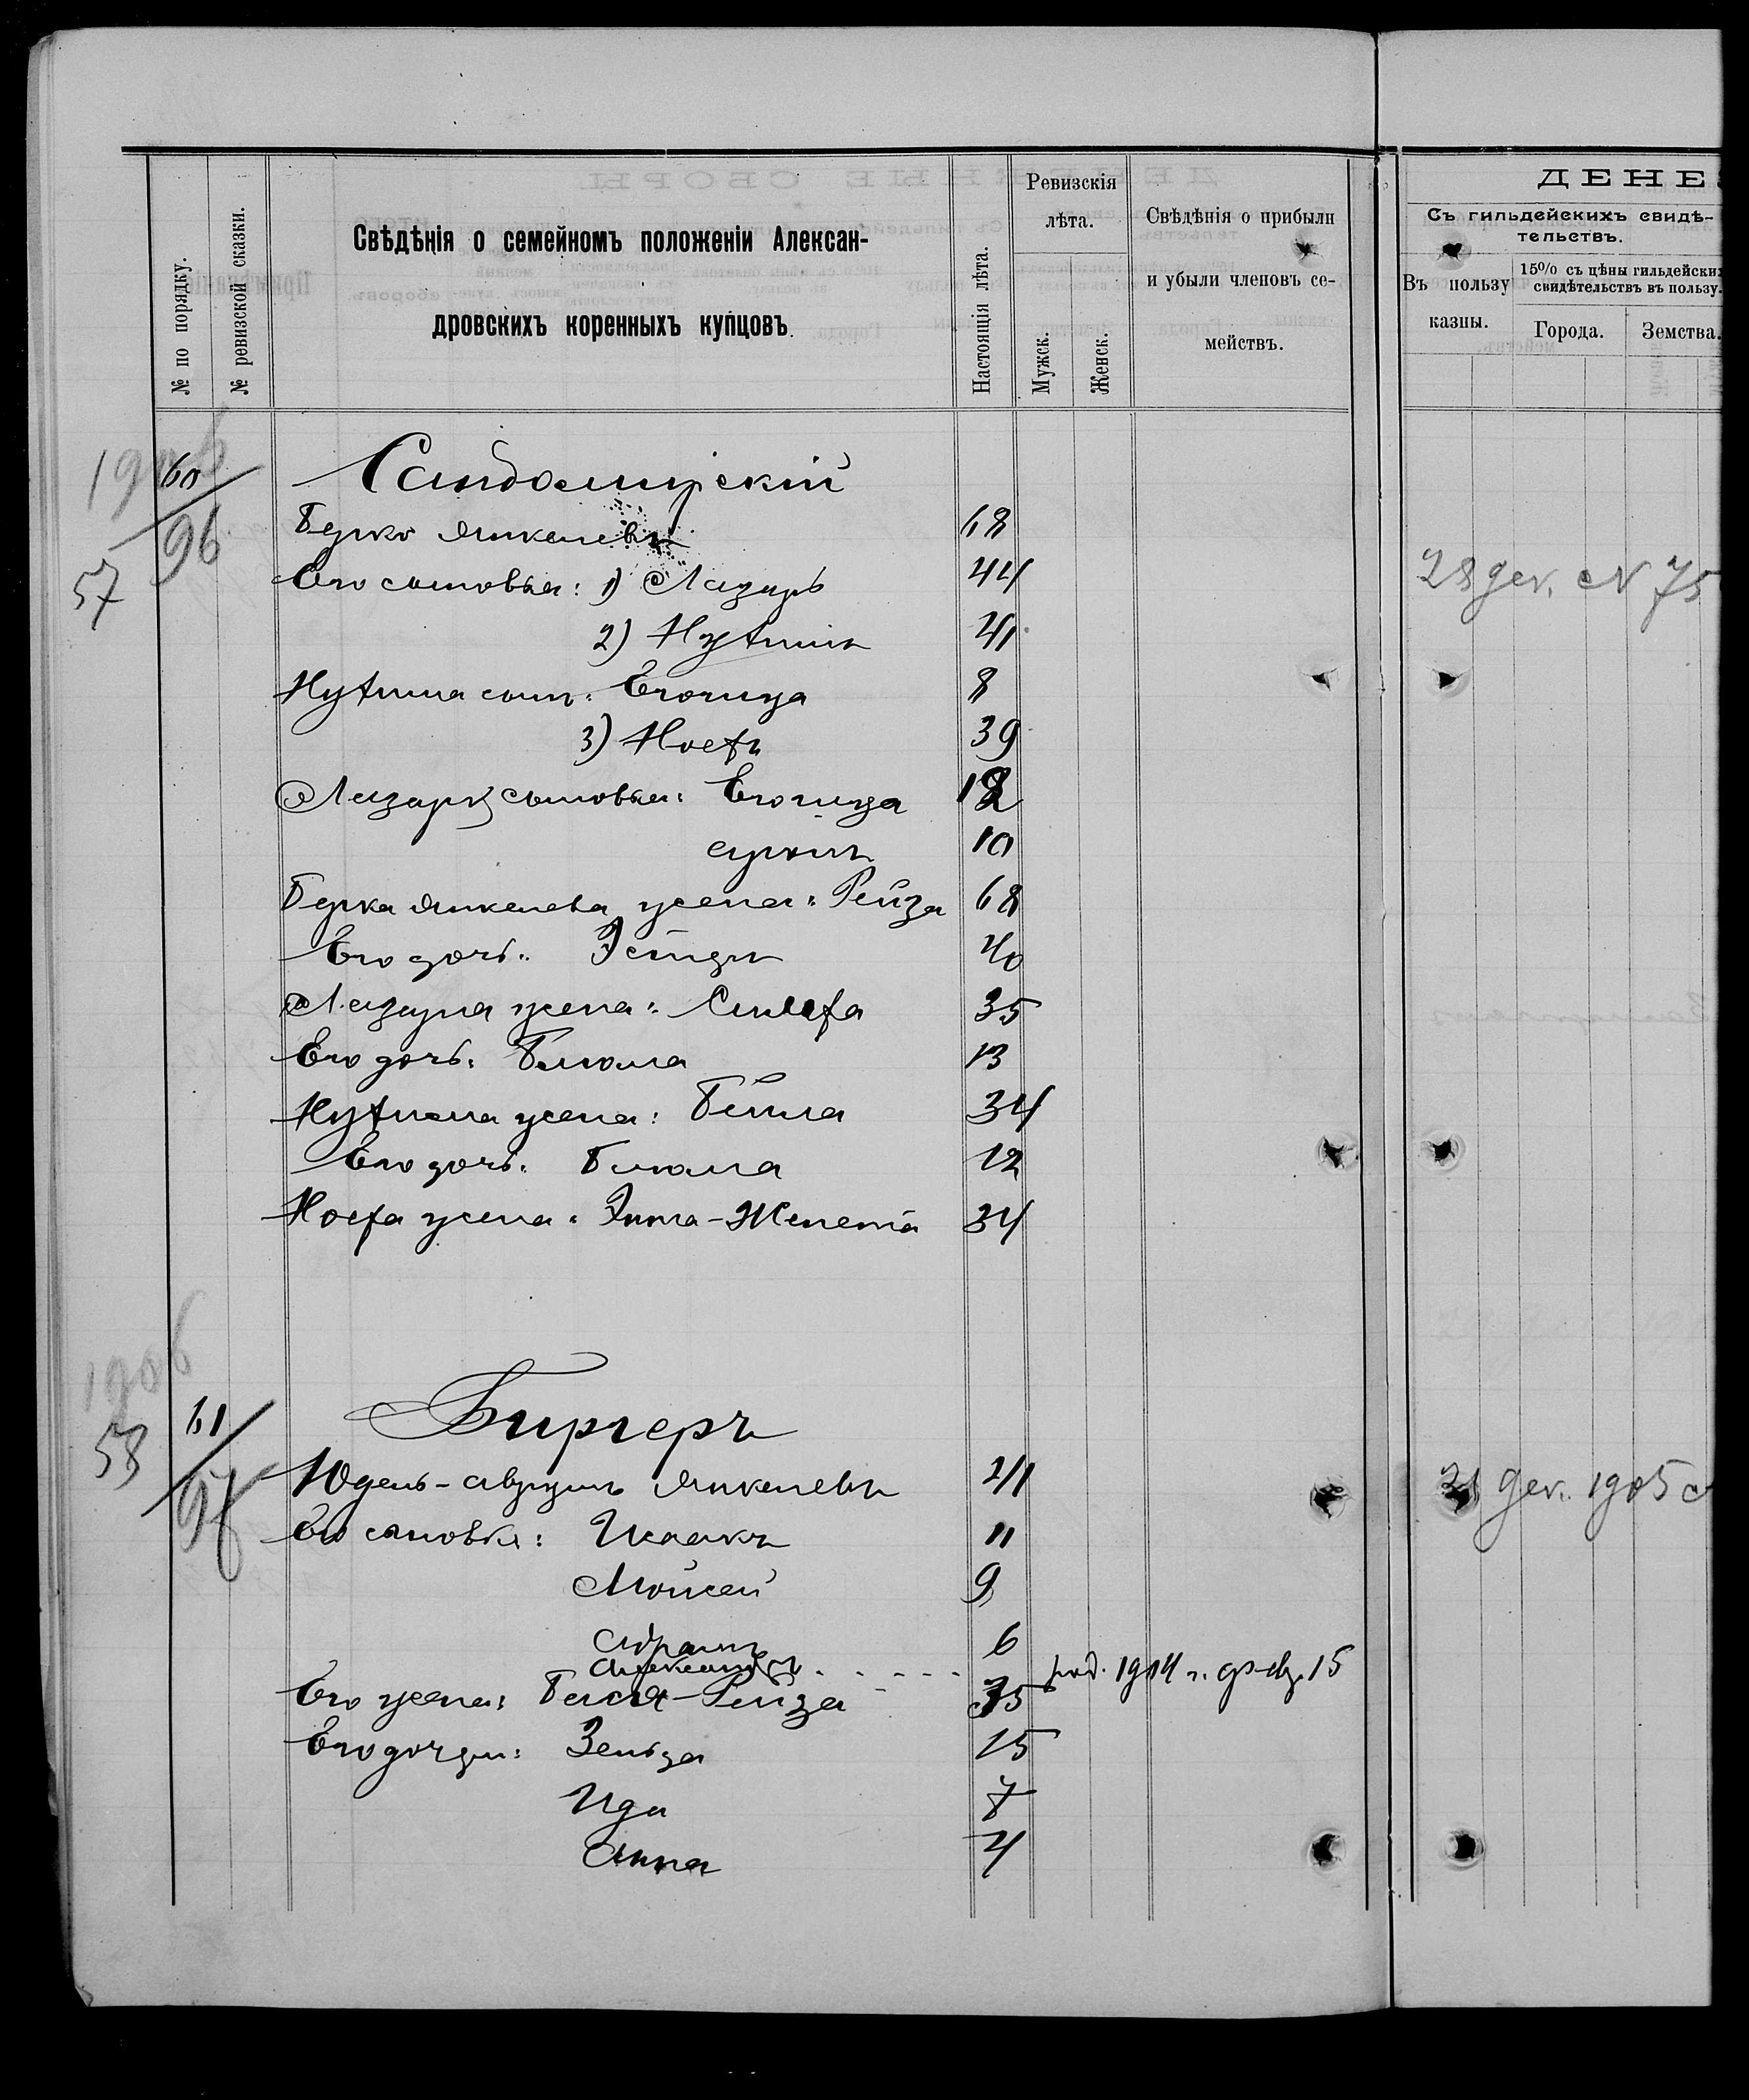 № по порядку.
№ ревизской сказки.
Свѣдѣнія о семейномъ положеніи Алексан-
дровскихъ коренныхъ купцовъ.
Настоящія лѣта.
Ревизскія
лѣта.
Мужск.
Женск.
Свѣдѣнія о прибыли
и убыли членовъ се-
мействъ.
ДЕНЕ
Съ гильдейскихъ свидѣ-
тельствъ.
Въ пользу
казны.
15% съ цѣны гильдейски
свидѣтельствъ въ пользу.
Города.
Земства.
1906
60
96
57
Сандомирскій
Берко Янкелевъ 68
Его сыновья: 1) Лазарь 44
28 дек. N 75
2) Нухимъ 41
Нухима сынъ: Егошуа 8
3) Ноехъ 39
Лазаря сыновья: Егошуа
10
Берка Янкелева жена: Рейза 68
Его дочь: Эстеръ 40
Лазаря жена: 35
Его дочь: Блюма 13
Нухима жена: Бейла 34
Его дочь: Блюма 12
Ноеха жена: Энта-Женета 34
1906
61
97
58
Биргеръ
Юдель-Аврумъ Янкелевъ 41
21 дек. 1905
Его сыновья: Исаакъ 11
Мойсей 9
Абрамъ 6
Александръ род. 1904 г. фев. 15
Его жена: Бася-Рейза 35
Его дочери: Зельда 15
Ида 7
Анна 4